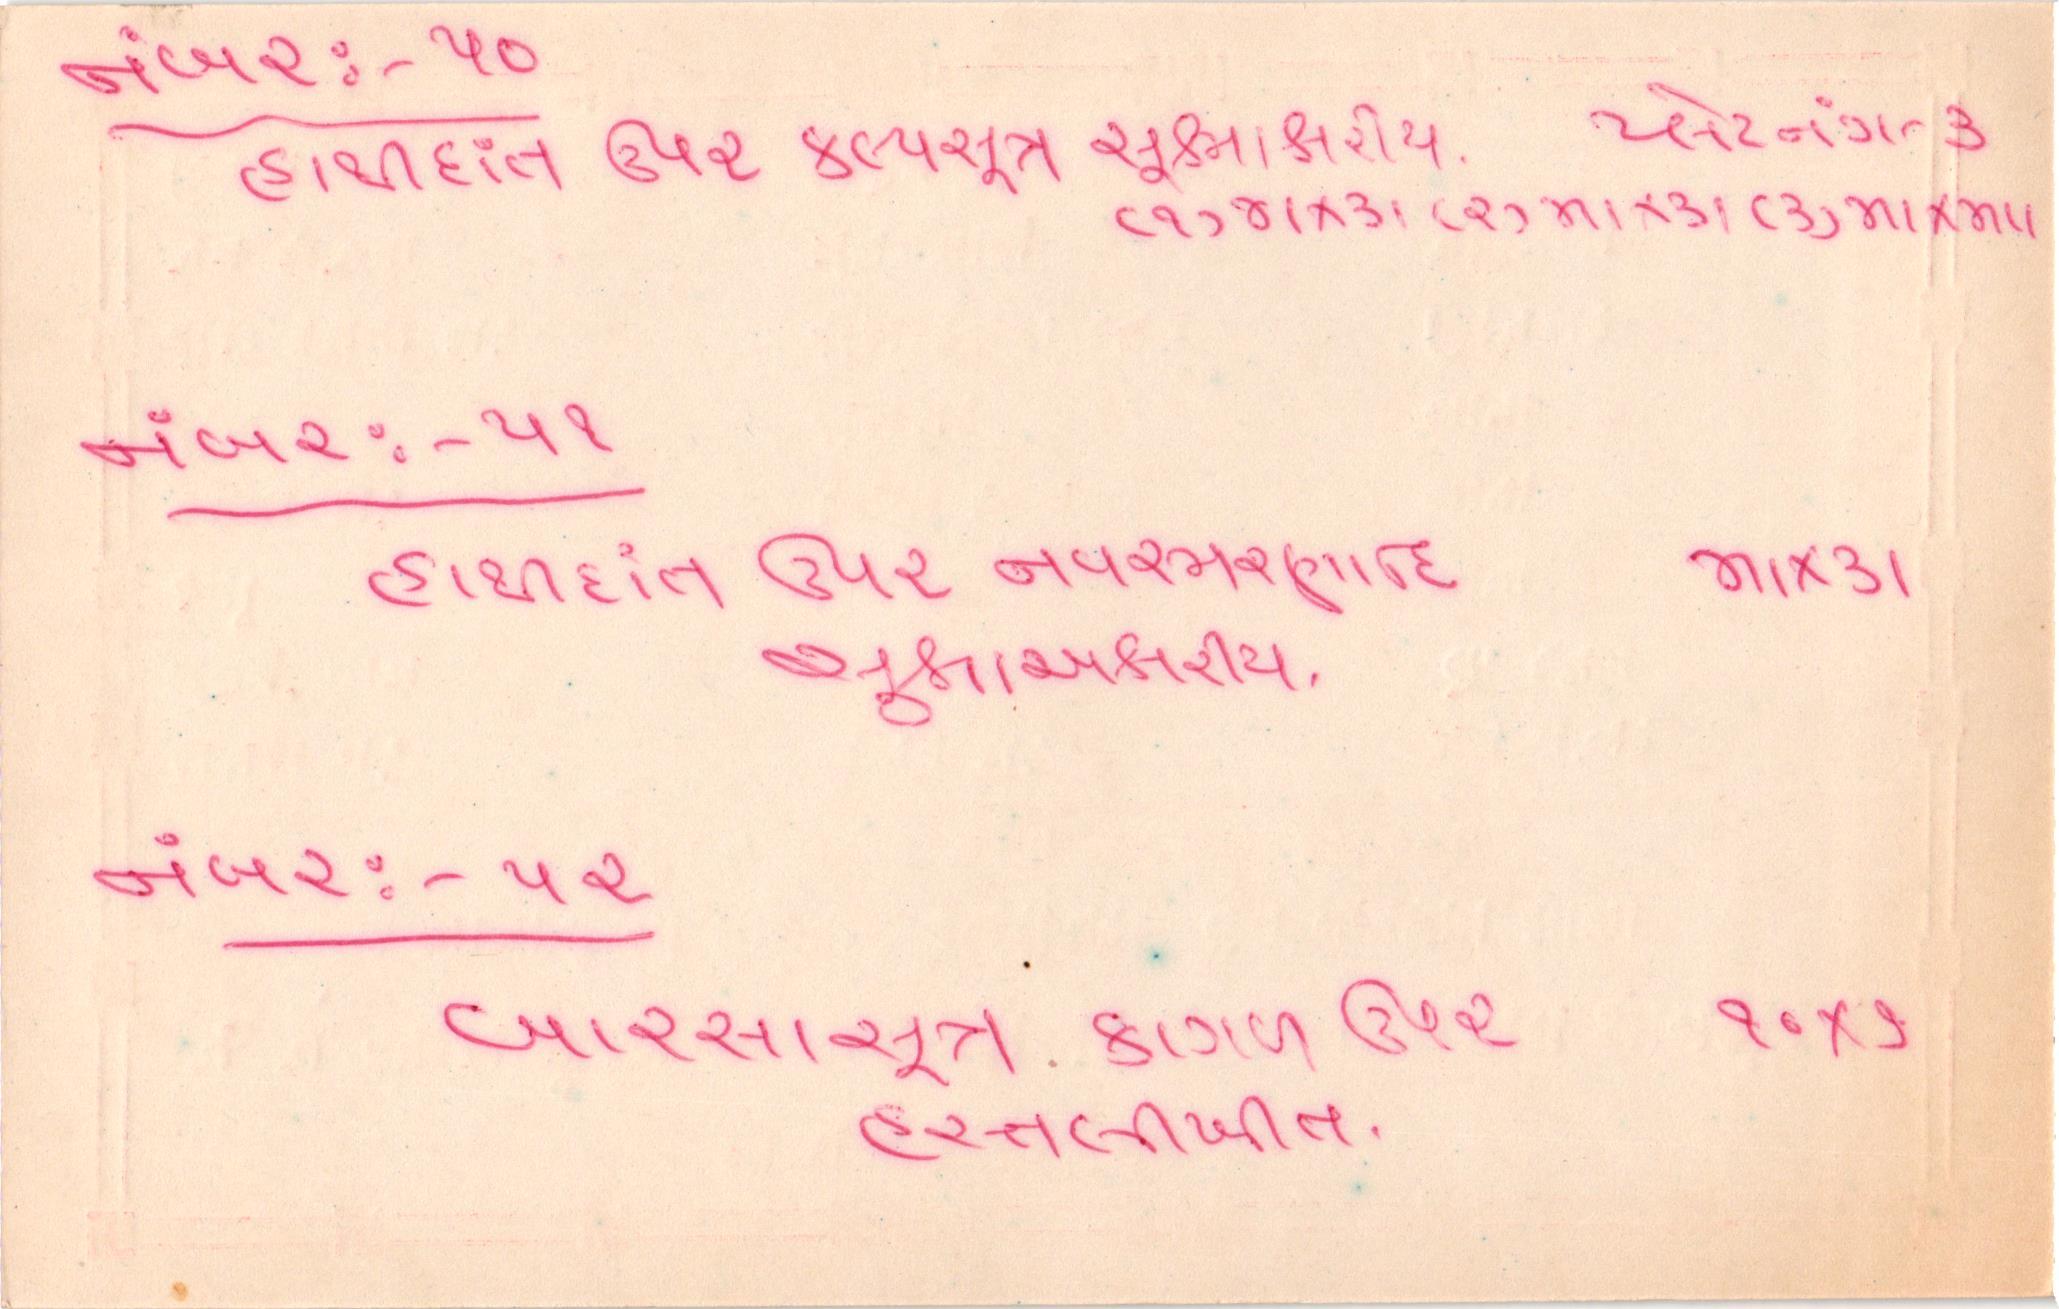 નંબર:- ૫૦
હાથીદાંત ઉપર કલ્પસૂત્ર સૂક્ષ્માક્ષરીય. પ્લેટનંગ-૩
(૧) ૪ા×૩ા (૨) ૪ા×૩ા (૩) ૪ા×૪ાા
નંબર:- ૫૧
હાથીદાંત ઉપર નવસ્મરણાદિ ૪ા×૩ા
સુક્ષ્માઅક્ષરીય.
નંબર:- ૫૨
બારસાસૂત્ર કાગળ ઉપર
હસ્તલીખીત.